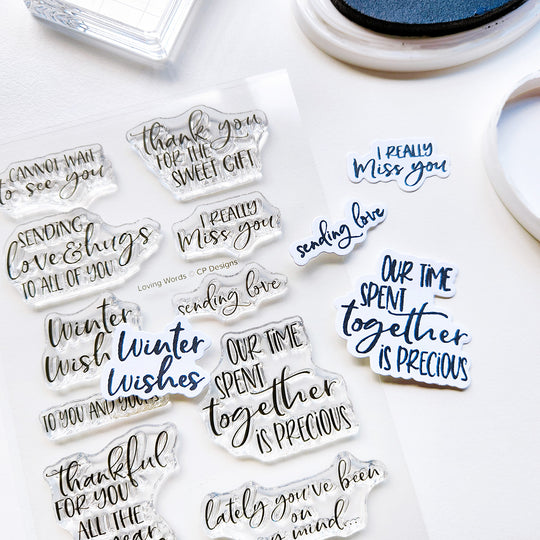 CANNOT WAIT
to see you
thank you
FOR THE
SWEET GIFT
SENDING
love & hugs
TO ALL OF YOU
I REALLY
Miss you
Loving Words © CP Designs
sending love
Winter
Wish
TO YOU AND YOURS
OUR TIME
SPENT
together
IS PRECIOUS
thankful
FOR YOU
ALL THE
year
lately you've been
on
mind...
Winter
Wishes
I REALLY
Miss you
sending love
OUR TIME
SPENT
together
IS PRECIOUS